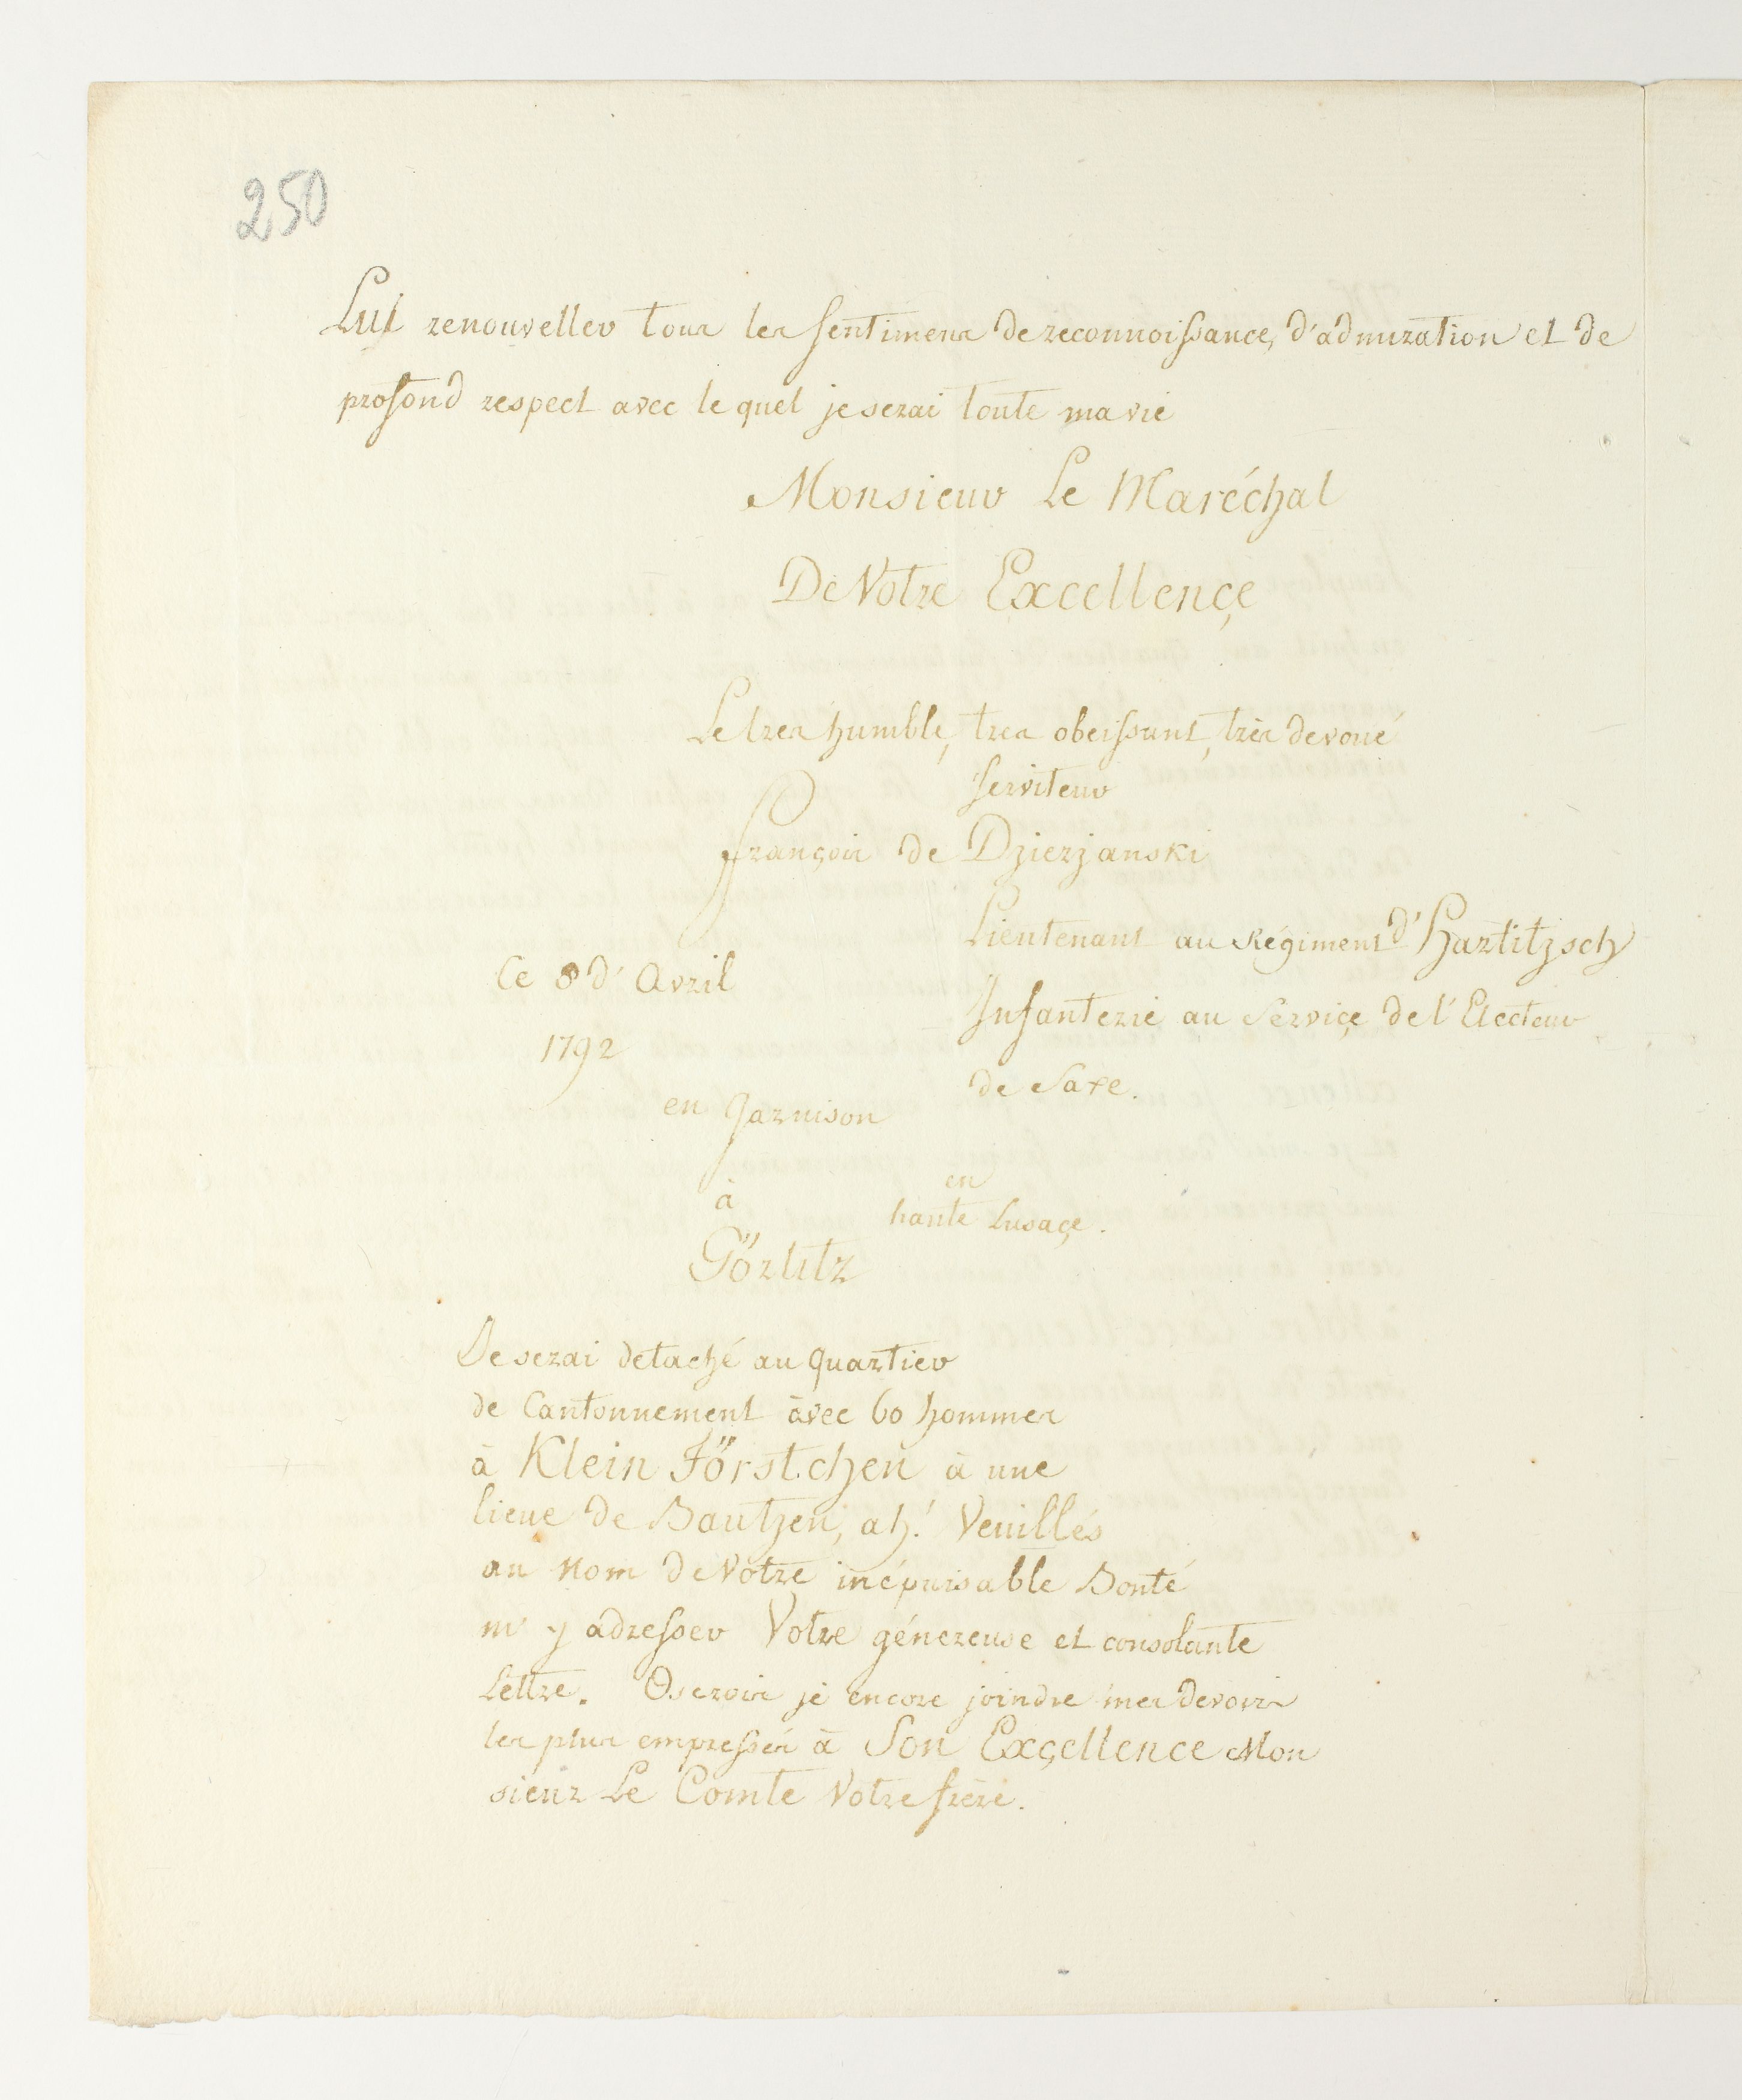 250
Lui renouveller tous les sentimens de reconnoissance, d'admiration et de
profond respect avec le quel je serai toute ma vie
Monsieur Le Maréchal
De Votre Excellençe
Le tres humble, tres obeissant, très devoué
serviteur
françois de Dzierzanski
Lieutenant au Régiment d'Hartitzsch
Ce 8 d'Avril
Infanterie au Serviçe de l'Electeur
1792
de Saxe.
en Garnison
à
en
haute Lusaçe.
Görlitz
Je serai detaché au quartier
de Cantonnement àvec 60 hommes
à Klein Förstchen à une
lieue de Bautzen, ah! Veuillés
au Nom de Votre inépuisable Bonté
m'y adresser Votre généreuse et consolante
Lettre. Oserois je encore joindre mes devoirs
les plus empressés à Son Exçellence Mon
sieur Le Comte Votre frère.